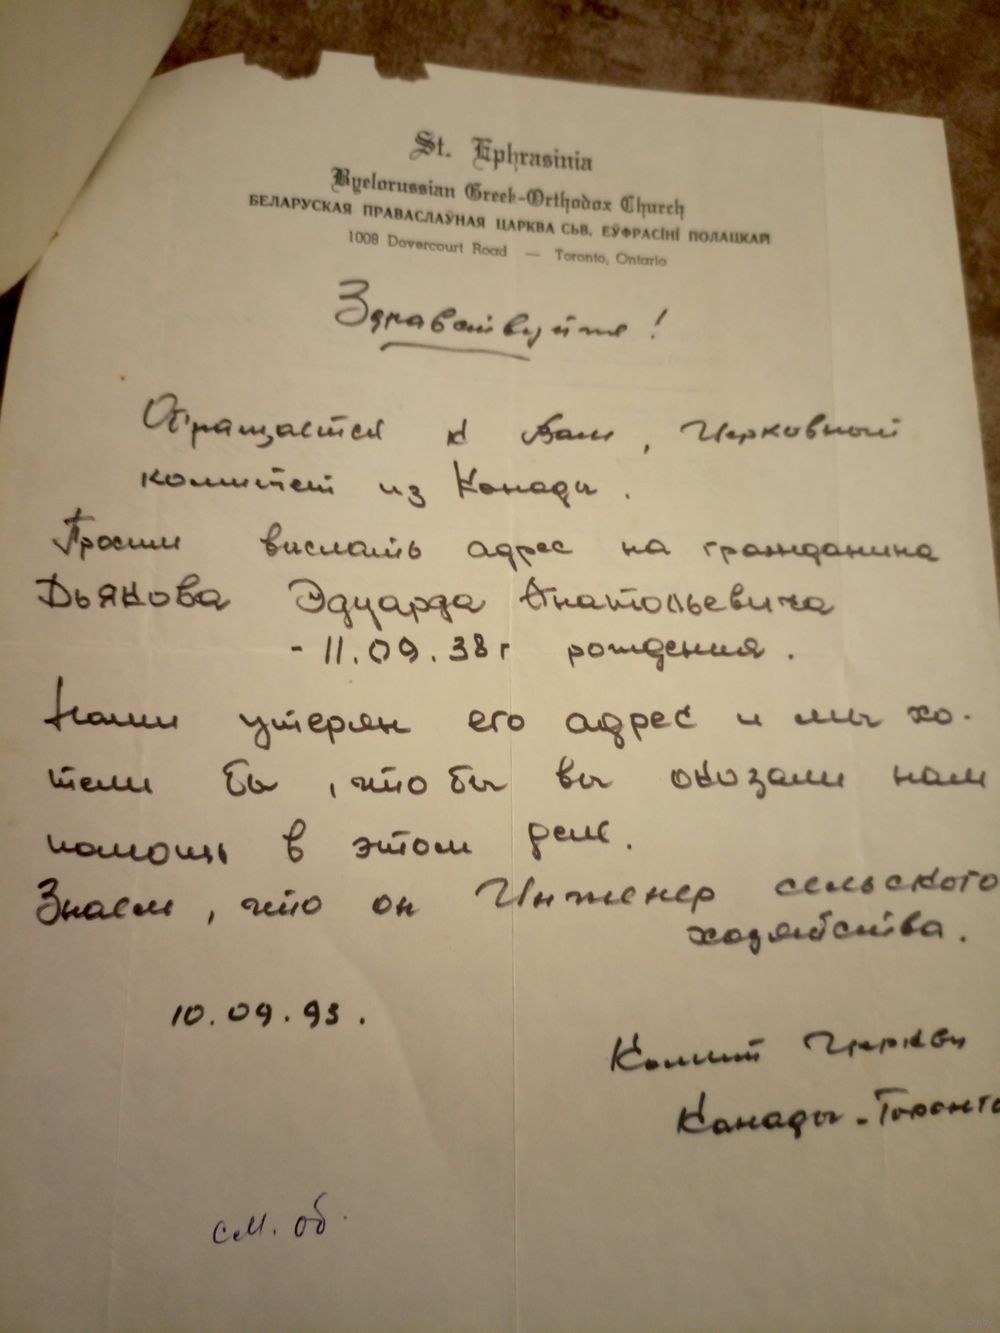 St. Ephrasinia
Byelorussian Greek-Orthodox Church
БЕЛАРУСКАЯ ПРАВАСЛАЎНАЯ ЦАРКВА СЬВ. ЕЎФРАСІНІ ПОЛАЦКАЙ
1008 Dovercourt Road — Toronto, Ontario
Здравствуйте!
Обращается к Вам, Церковный
комитет из Канады.
Просим вислать адрес на гражданина
Дьякова Эдуарда Анатольевича
- 11.09.38 г рождения.
Нами утерян его адрес и мы хо-
тели бы, что бы вы оказали нам
помощь в этом деле.
Знаем, что он Инженер сельского
хозяйства.
10.09.93.
Комит Церкви
Канады - Торонто
см. об.